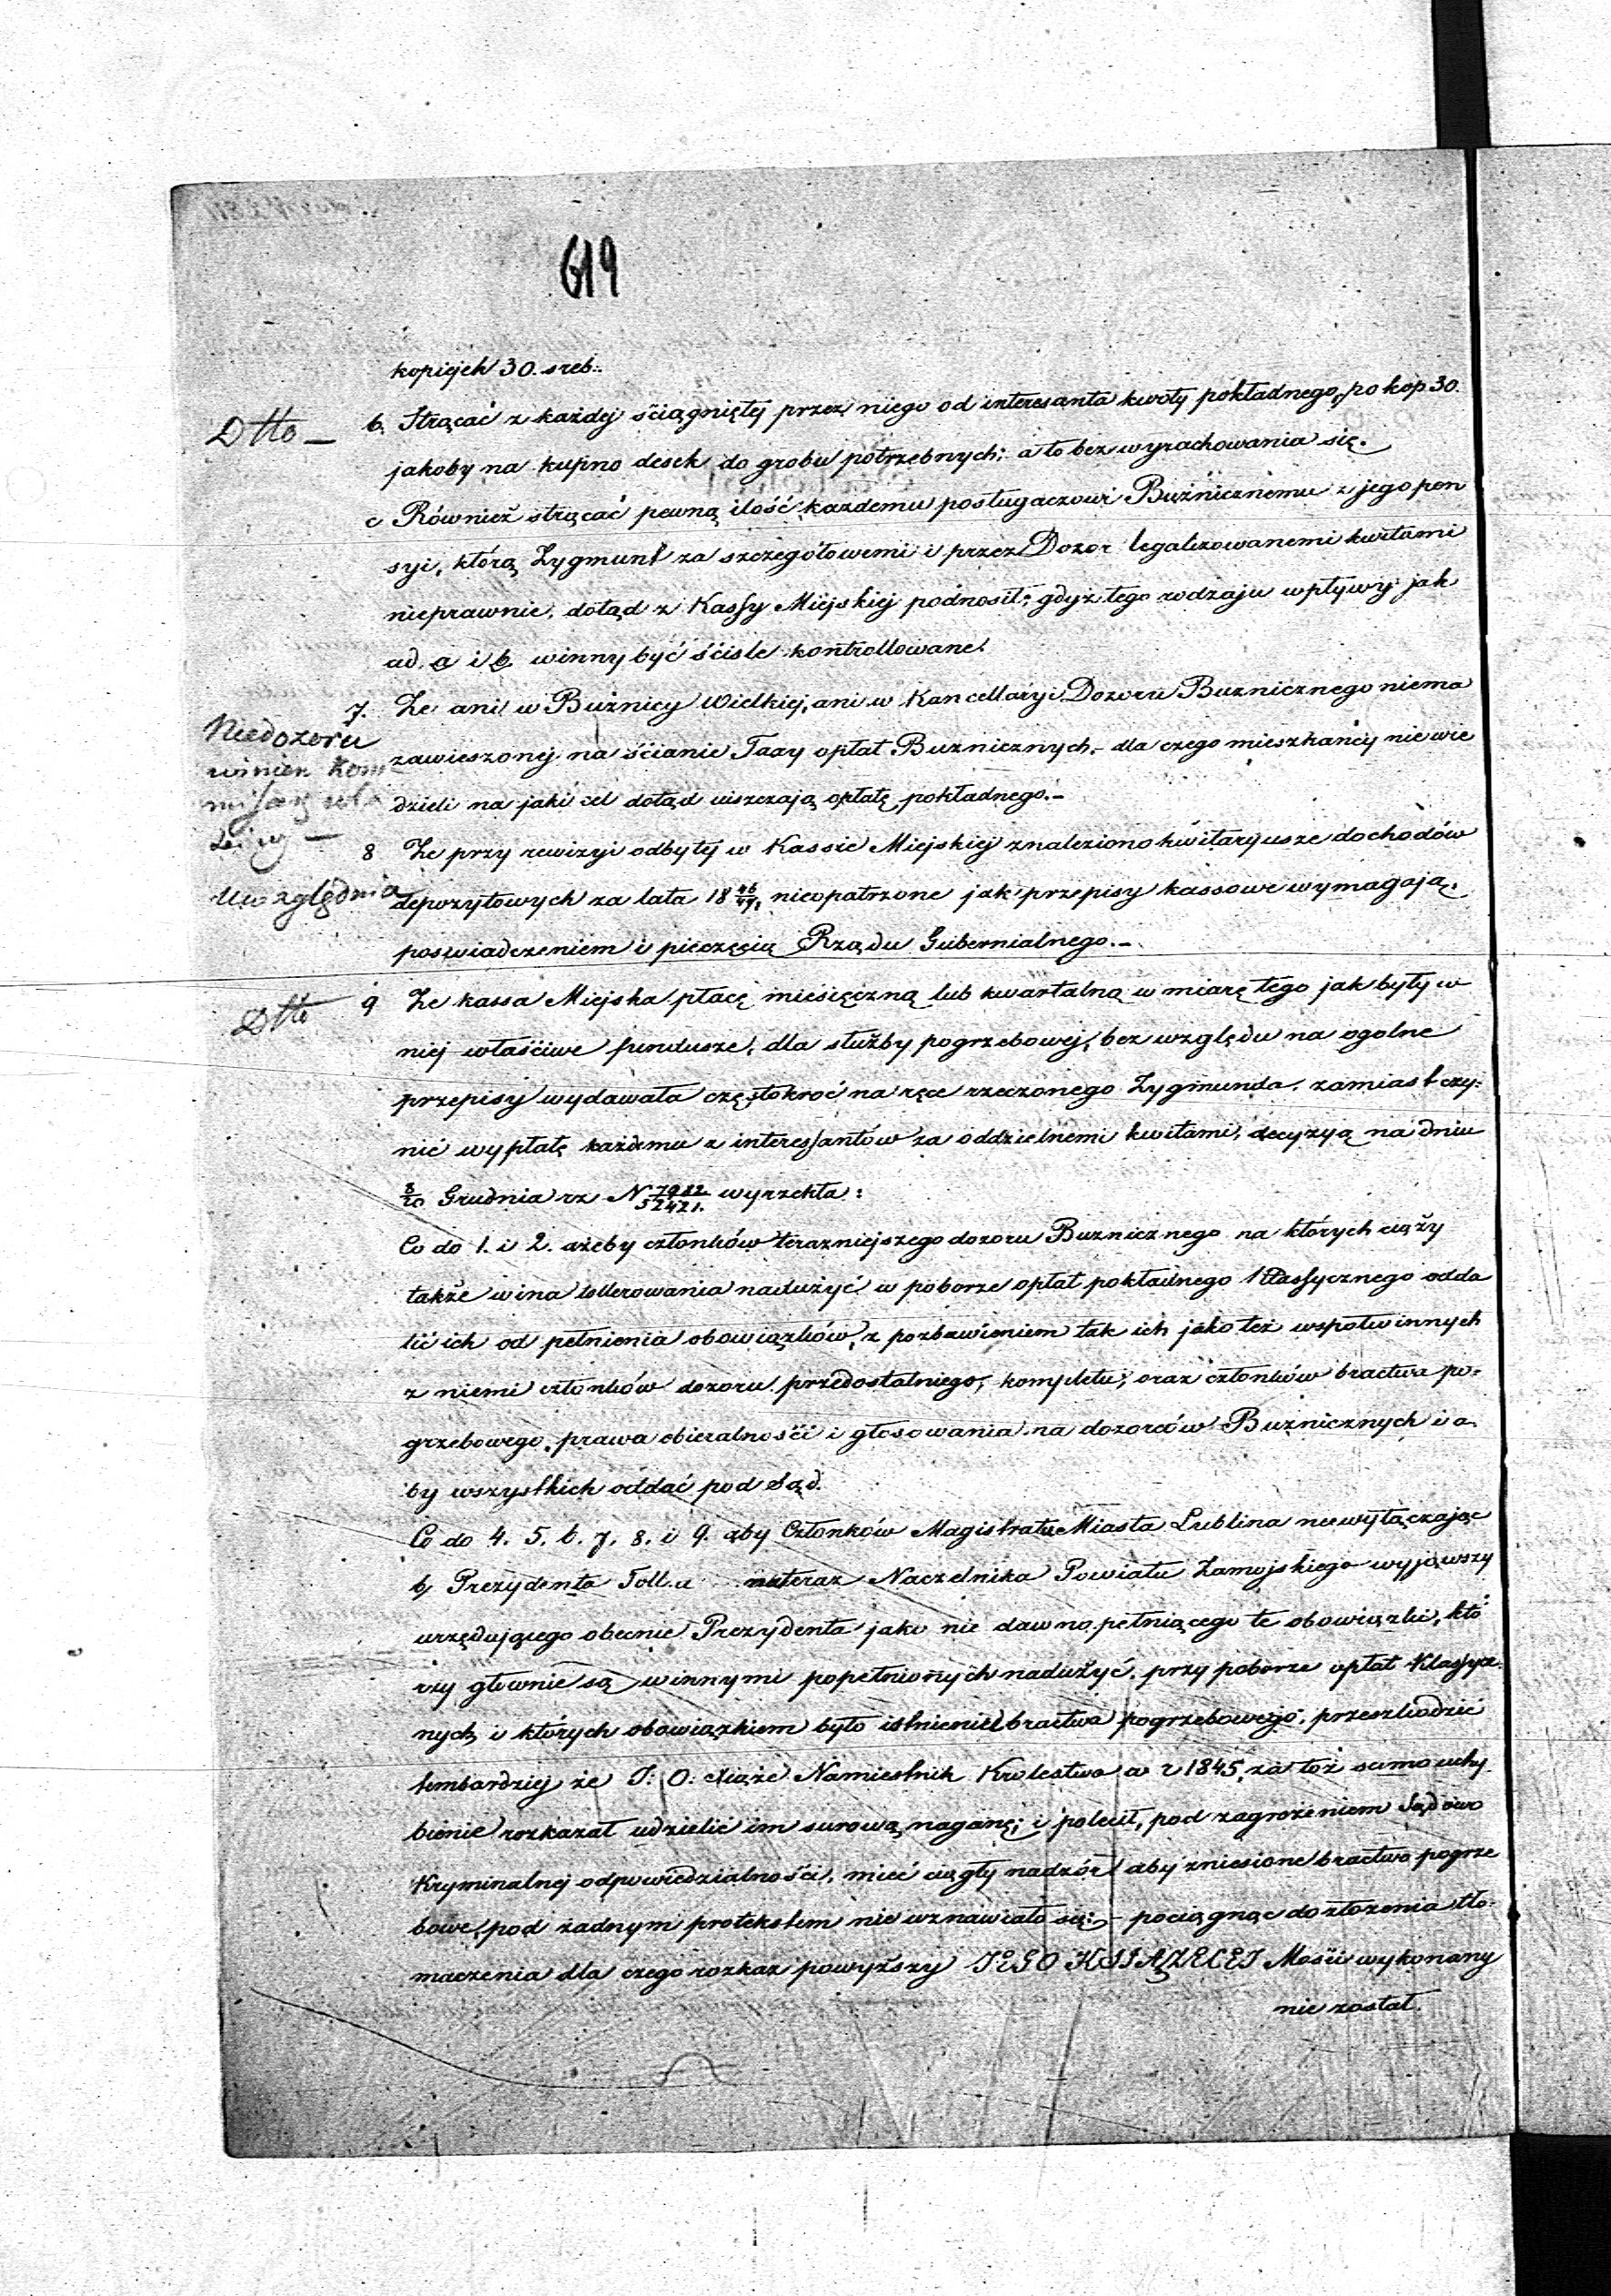 619
kopiejek 30. sreb:.
Dtto —
b. Strącać z każdej ściągniętej przez niego od interesanta kwoty pokładnego, po kop 30.
jakoby na kupno desek do grobu potrzebnych; a to bez wyrachowania się.
c Również strącać pewną ilość każdemu posługaczowi Bużnicznemu z jego pen
syi, którą Zygmunt za szczegółowemi i przez Dozor legalizowanemi kwitami
nieprawnie, dotąd z Kassy Miejskiej podnosił; gdyż tego rodzaju wpływy jak
ad. a i b winny być ściśle kontrollowane.
7. Ze ani w Bużnicy Wielkiej, ani w Kancellaryi Dozoru Buznicznego niema
Niedozoru
winien Kom
zawieszonej na ścianie Taxy opłat Buznicznych,- dla czego mieszkańcy nie wie
dzieli na jaki cel dotąd uiszczają opłatę pokładnego.-
8 Ze przy rewizyi odbytej w Kassie Miejskiej znaleziono kwitaryusze dochodów
Uwzględnia
depozytowych za lata 18 46/47, nieopatrzone jak przepisy kassowe wymagają,
poswiadczeniem i pieczęcią Rządu Gubernialnego.-
Dtto
9 Ze kassa Miejska płacę miesięczną lub kwartalną w miarę tego jak były w
niej właściwe fundusze, dla służby pogrzebowej, bez względu na ogolne
przepisy wydawała częstokroć na ręce rzeczonego Zygmunda, zamiast czy=
nić wypłatę każdemu z interessantów za oddzielnemi kwitami, decyzyą na dniu
8/20 Grudnia rz N wyrzekła:
Co do 1. i 2. ażeby członków terazniejszego dozoru Buznicznego na których ciąży
także wina tollerowania nadużyć w poborze opłat pokładnego Klassycznego odda
lić ich od pełnienia obowiązków, z pozbawieniem tak ich jako też wspołwinnych
z niemi członków dozoru przedostatniego, kompletu, oraz członków bractwa po=
grzebowego, prawa obieralności i głosowania na dozorców Buznicznych i a
by wszystkich oddać pod Sąd.
Co do 4. 5. 6. 7. 8. i 9. aby Członków Magistratu Miasta Lublina niewyłączając
b. Prezydenta Toll.a nateraz Naczelnika Powiatu Zamojskiego wyjąwszy
urzędującego obecnie Prezydenta jako nie dawno pełniącego te obowiązki, któ
rzy głównie są winnymi popełnionych nadużyć, przy poborze opłat Klassycz
nych i których obowiązkiem było istnienie bractwa pogrzebowego, przeszkodzić
tembardziej że J: O: Xiąże Namiestnik Krolestwa w r 1845, za toż samo uchy
bienie rozkazał udzielić im surową naganę; i polecił, pod zagrożeniem Sądowo
Kryminalnej odpowiedzialności, mieć ciągły nadzór aby zniesione bractwo pogrze
bowe, pod żadnym protekstem nie wznawiało się; - pociągnąć do złożenia tło-
maczenia dla czego rozkaz powyższy JEGO KSIĄZECEJ Mości wykonany
nie został.